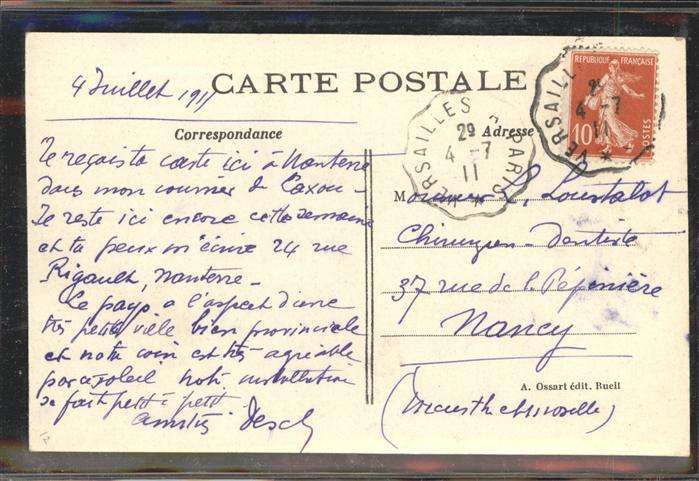 CARTE POSTALE
4 Juillet 1911
Correspondance
Adresse
REPUBLIQUE FRANÇAISE
10
POSTES
VERSAILLES A PARIS
29
4 -7
11
VERSAILL
4 -7
11
Je reçois ta carte ici à Nanterre
dans mon courrier de Laxou -
Je reste ici encore cette semaine
et tu peux m'écrire 24 rue
Rigault, Nanterre -
Le pays a l'aspect d'une
très petite ville bien provinciale
et notre coin est très agréable
par ce soleil notre installation
se fait petit à petit.
Amitiés
Monsieur L. Loustalot
Chirurgien-Dentiste
37 rue de la Pépinière
Nancy
(Meurthe et Moselle)
A. Ossart édit. Rueil